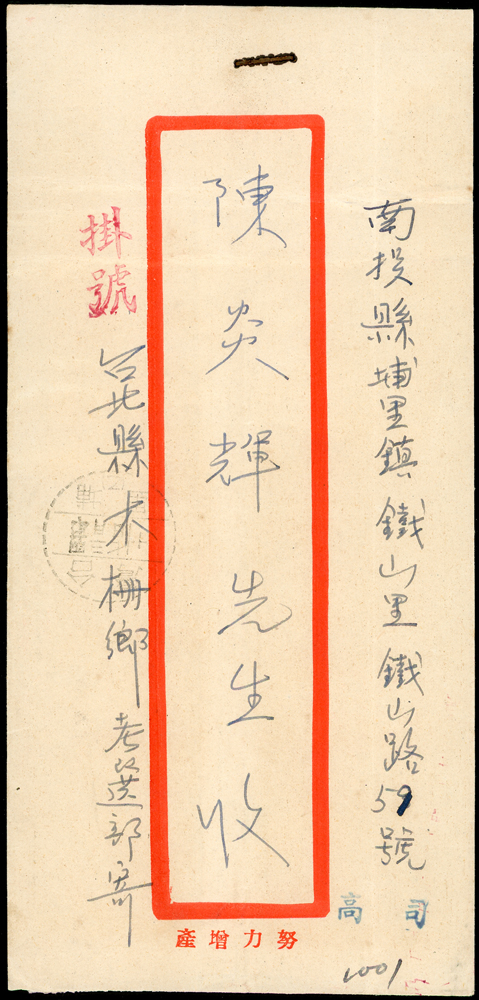 南投縣埔里鎮鐵山里鐵山路59號
陳炎輝先生收
掛號
台北縣木柵鄉考選部寄
高司
努力增產
1001